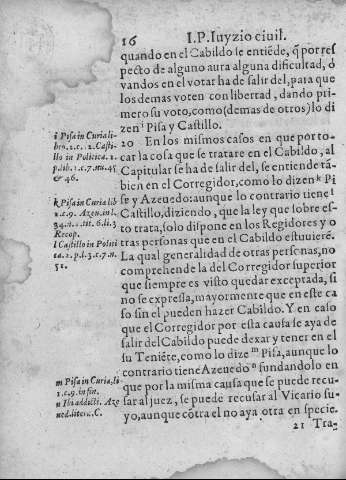 16 I.P. Iuyzio ciuil.
quando en el Cabildo se entiẽde, q̃ por res
pecto de alguno aura alguna dificultad, ó
vandos en el votar ha de salir del, para que
los demas voten con libertad, dando pri-
mero su voto, como (demas de otros) lo di
zen i Pisa y Castillo.
20 En los mismos casos en que por to-
car la cosa que se tratare en el Cabildo, al
Capitular se ha de salir del, se entiende tã-
bien en el Corregidor, como lo dizen k Pi
sa y Azeuedo: aunque lo contrario tiene l
Castillo, diziendo, que la ley que sobre es-
to trata, solo dispone en los Regidores y o
tras personas que en el Cabildo estuuierẽ.
La qual generalidad de otras personas, no
comprehende la del Corregidor superior
que siempre es visto quedar exceptada, si
no se expressa, mayormente que en este ca
so sin el pueden hazer Cabildo. Y en caso
que el Corregidor por esta causa se aya de
salir del Cabildo puede dexar y tener en el
su Teniẽte, como lo dize m Pisa, aunque lo
contrario tiene Azeuedo n fundandolo en
que por la misma causa que se puede recu-
sar al juez, se puede recusar al Vicario su-
yo, aunque cõtra el no aya otra en especie.
21 Tra-
i Pisa in Curia li
bro. 1. c. 2. Casti-
llo in Politica. 2.
p. lib. 3. c. 7. nu. 45
& 46.
k Pisa in Curia lib
1. c. 9. Azeu. in l.
34. n. 1. tit. 6. li. 3
Recop.
l Castillo in Politi
ca. 2. p. l. 3. c. 7. n.
51.
m Pisa in Curia, li-
1. c. 9. in fin.
n Ibi addicti. Aze
ued. litera. C.